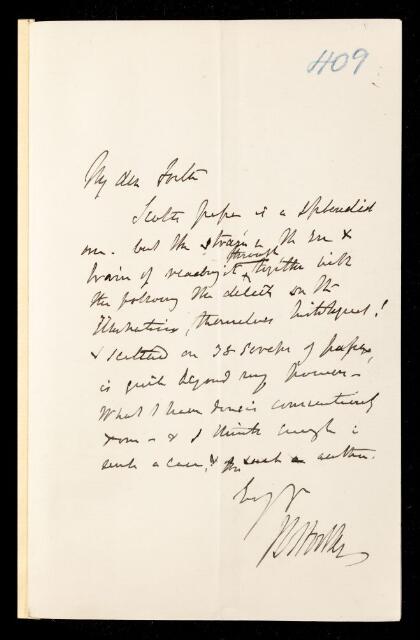 409
My dear Foster
Scott's paper is a splendid
one. but the strain on the Eye &
through
brain of reading it together with
the following the details on the
Illustrations, themselves
& scattered on 38 scraps of paper,
is quite beyond my powers -
What I have done is conscientiously
done - & I think enough in
such a case, & for such an author.
Ev yr
J D Hooker